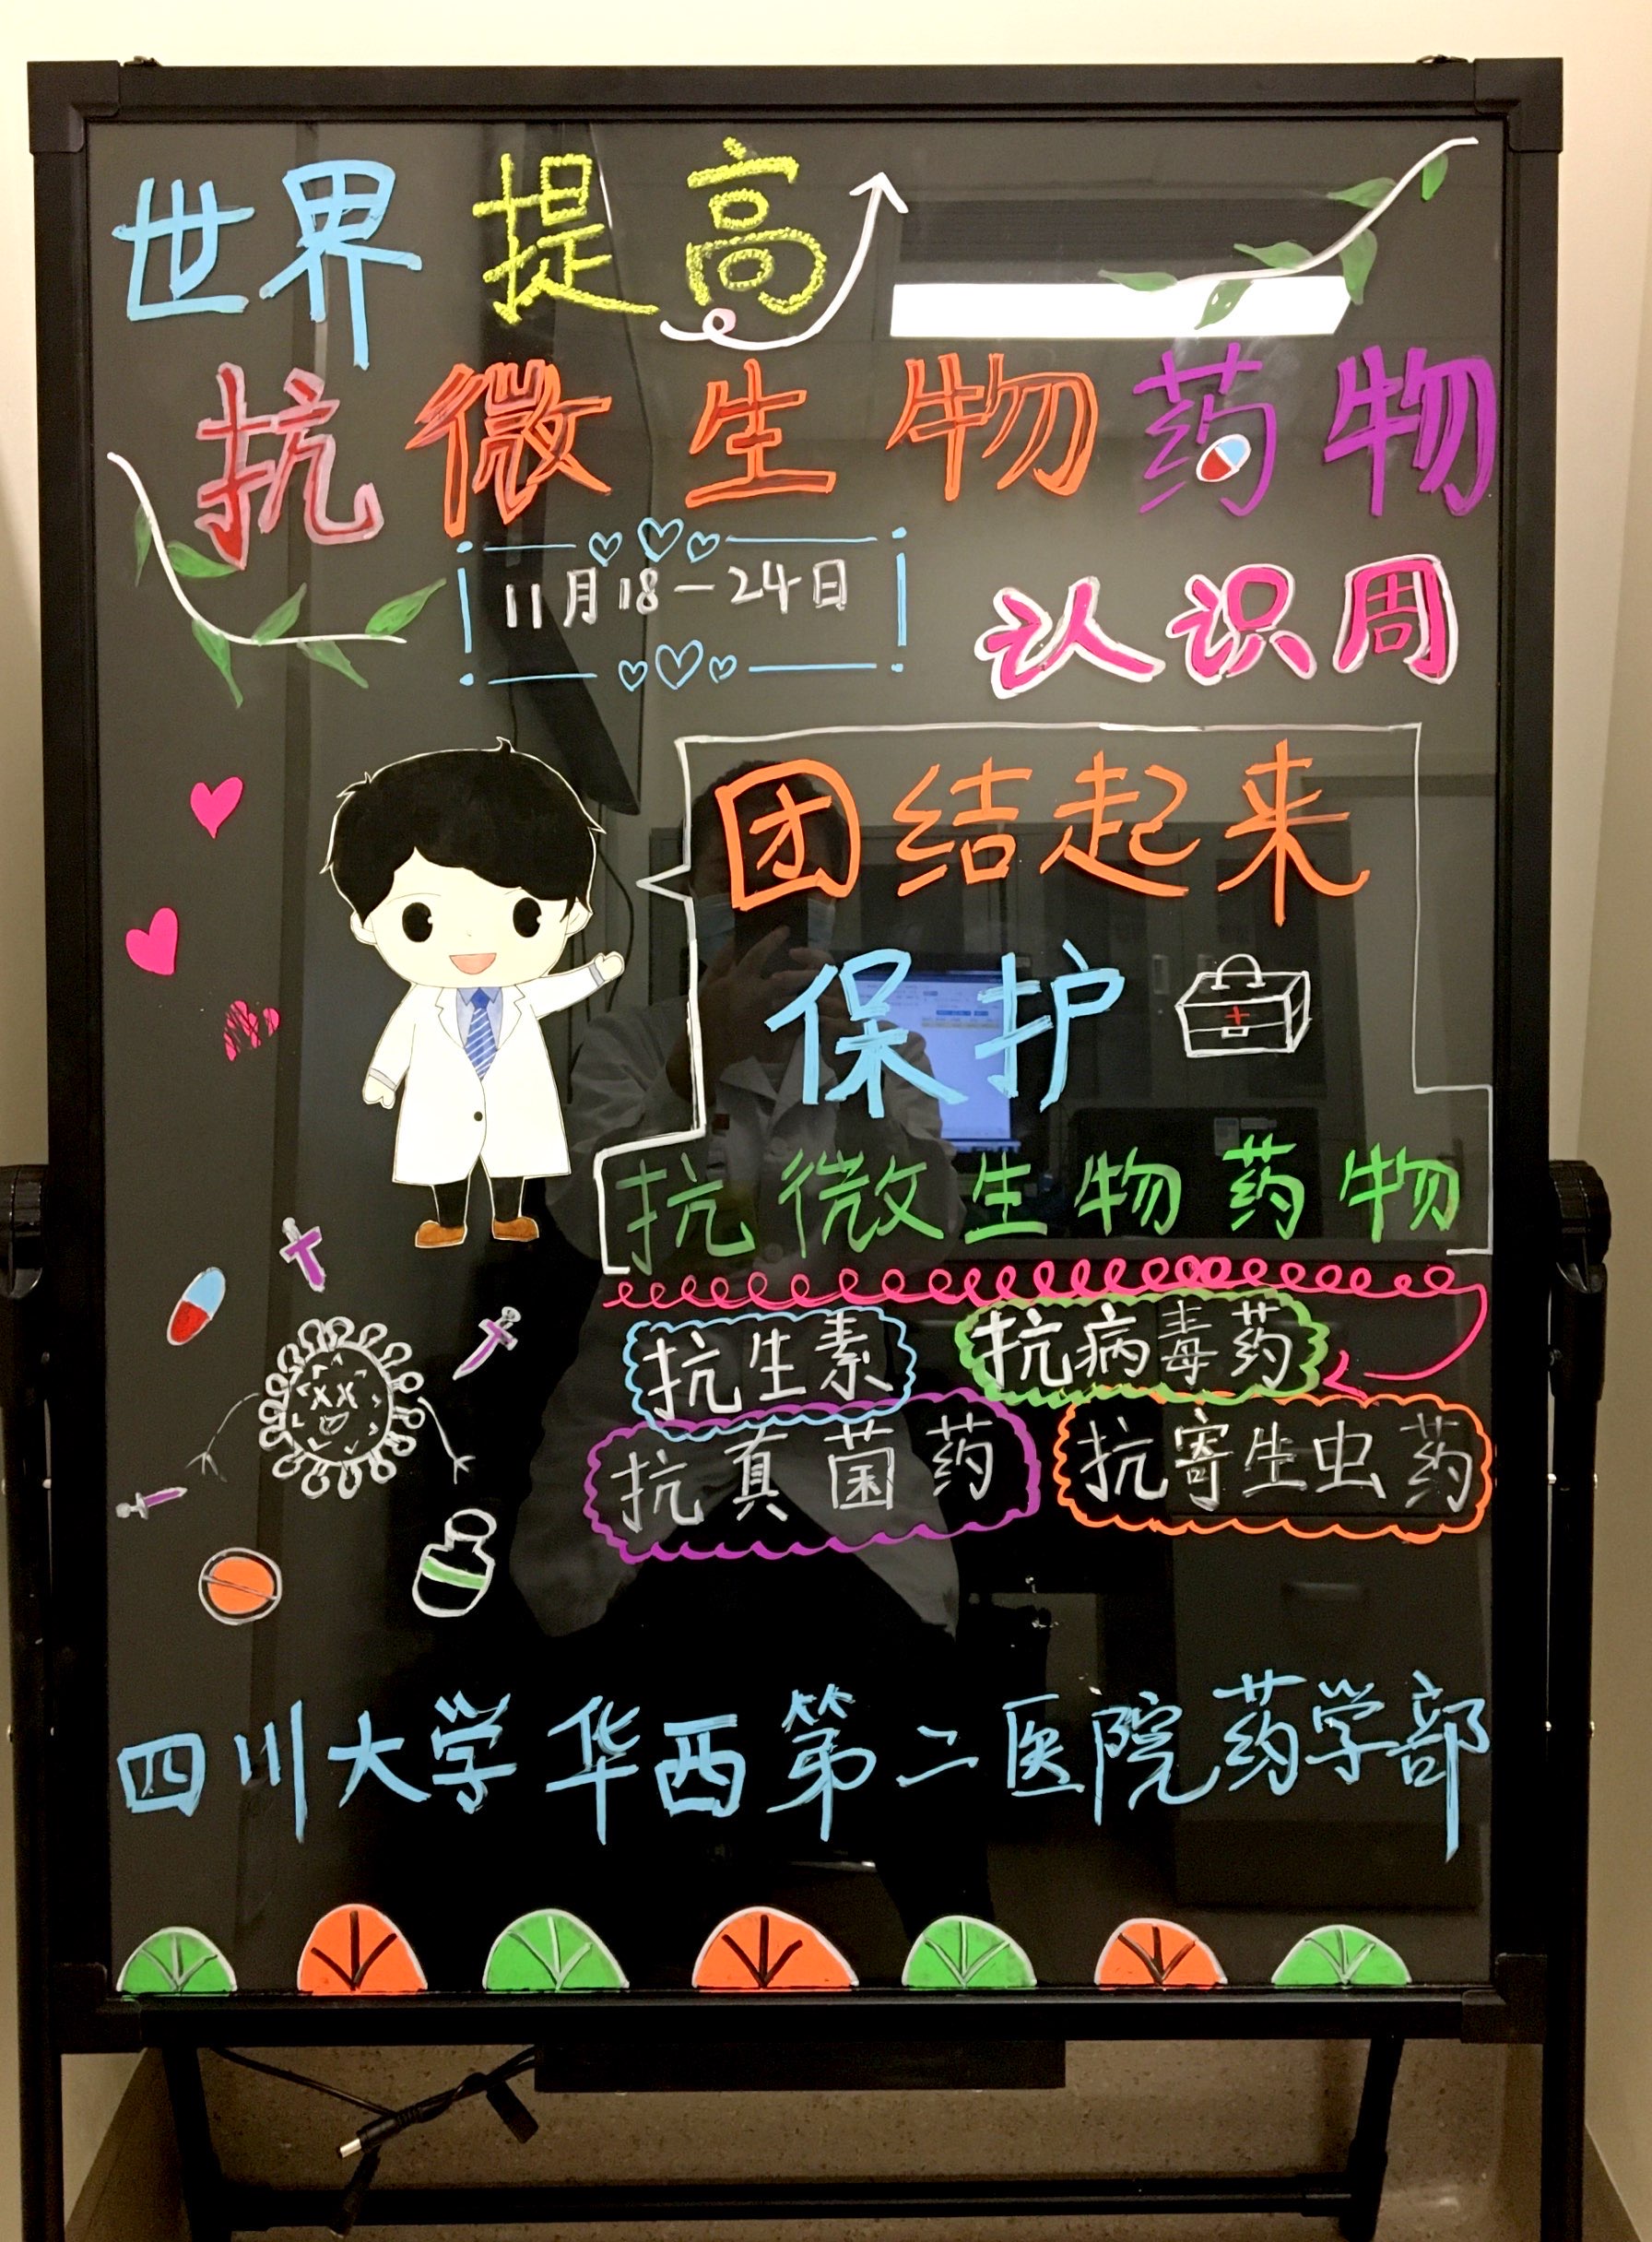 世界 提高
抗微生物药物
11月18-24日
认识周
团结起来
保护
抗微生物药物
抗生素 抗病毒药
抗真菌药 抗寄生虫药
四川大学华西第二医院药学部